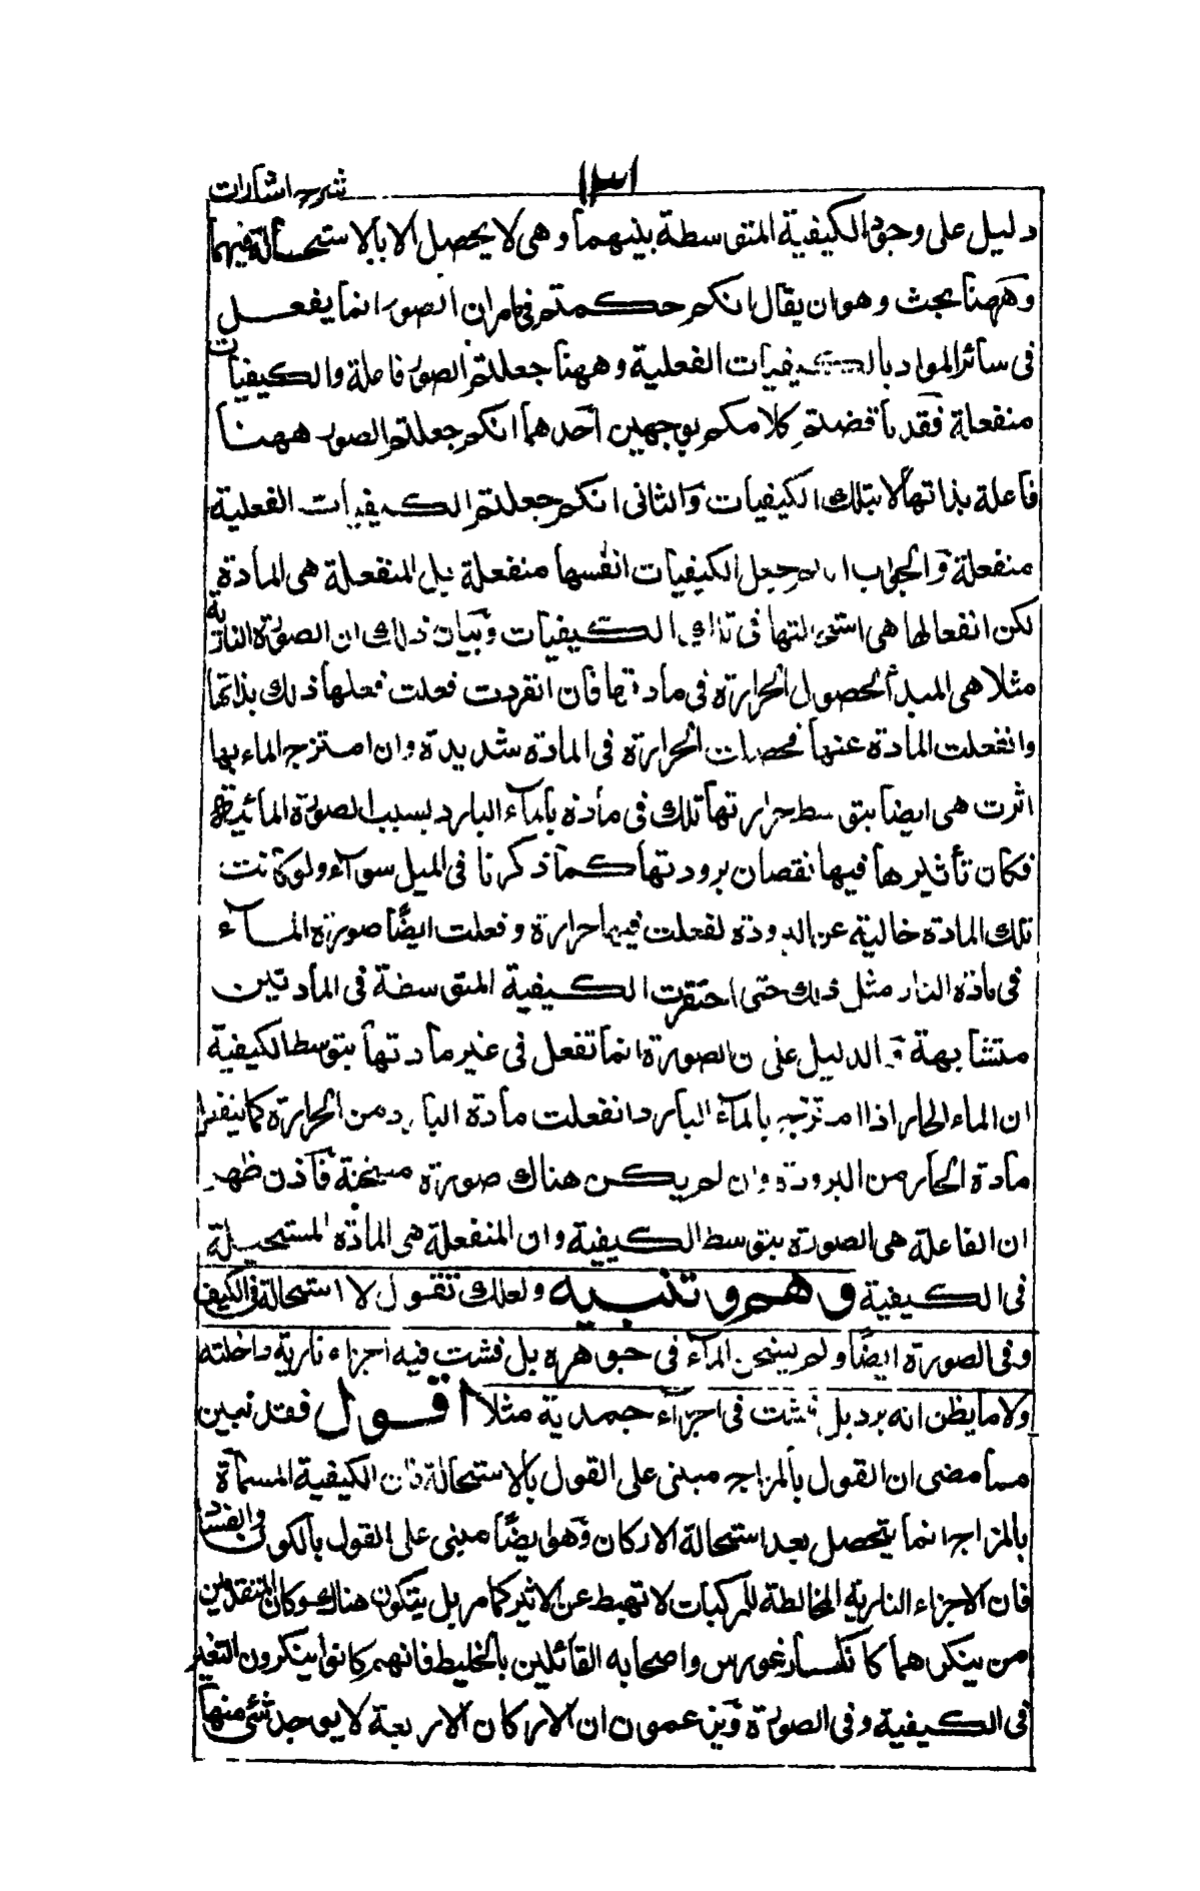 شرح اشارات
١٣١
دليل على وجود الكيفية المتوسطة بينهما وهى لا يحصل الا بالاستحالة فيهما
وههنا بحث وهو ان يقال انكم حكمتم فى مامر ان الصور انما يفعل
فى سائر المواد بالكيفيات الفعلية وههنا جعلتم الصور فاعلة والكيفيات
منفعلة فقد ناقضتم كلامكم بوجهين احدهما انكم جعلتم الصور ههنا
فاعلة بذاتها لا بتلك الكيفيات والثانى انكم جعلتم الكيفيات الفعلية
منفعلة والجواب انا لم نجعل الكيفيات انفسها منفعلة بل المنفعلة هى المادة
لكن انفعالها هى استحالتها فى تلك الكيفيات وبيان ذلك ان الصورة النارية
مثلا هى المبدأ لحصول الحرارة فى مادتها فان انفردت فعلت فعلها ذلك بذاتها
وانفعلت المادة عنها فحصلت الحرارة فى المادة شديدة وان امتزج الماء بها
اثرت هى ايضا بتوسط حرارتها تلك فى مادة الماء البارد بسبب الصورة المائية
فكان تأثيرها فيها نقصان برودتها كما ذكرنا فى الميل سواء ولو كانت
تلك المادة خالية عن البرودة لفعلت فيها حرارة وفعلت ايضًا صورة الماء
فى مادة النار مثل ذلك حتى استقرت الكيفية المتوسطة فى المادتين
متشابهة والدليل على ان الصورة انما تفعل فى غير مادتها بتوسط الكيفية
ان الماء الحار اذا امتزج بالماء البارد انفعلت مادة البارد من الحرارة كما ينفعل
مادة الحار من البرودة وان لم يكن هناك صورة مسخنة فاذن ظهر
ان الفاعلة هى الصورة بتوسط الكيفية وان المنفعلة هى المادة المستحيلة
فى الكيفية وهم وتنبيه ولعلك تقول لا استحالة فى الكيف
وفى الصورة ايضًا ولم يسخن الماء فى جوهره بل فشت فيه اجزاء نارية داخلته
ولا ما يظن انه برد بل فشت فى اجزاء جمدية مثلا اقول فقد تبين
مما مضى ان القول بالمزاج مبنى على القول بالاستحالة فان الكيفية المسماة
بالمزاج انما يتحصل بعد استحالة الاركان وهو ايضًا مبنى على القول بالكون والفساد
فان الاجزاء النارية المخالطة للمركبات لا تهبط عن الاثير كما مر بل يتكون هناك وكان المتقدمين
من ينكرهما كانكساغورس واصحابه القائلين بالخليط فانهم كانوا ينكرون التغير
فى الكيفية وفى الصورة ويزعمون ان الاركان الاربعة لا يوجد شئ منها